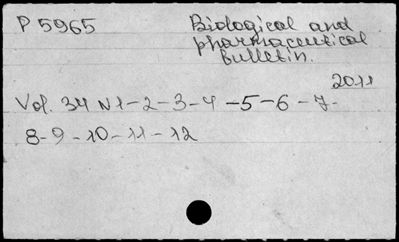 P 5965
Biological and
pharmaceutical
bulletin.
2011
Vol. 34 N 1-2-3-4-5-6-7-
8-9-10-11-12